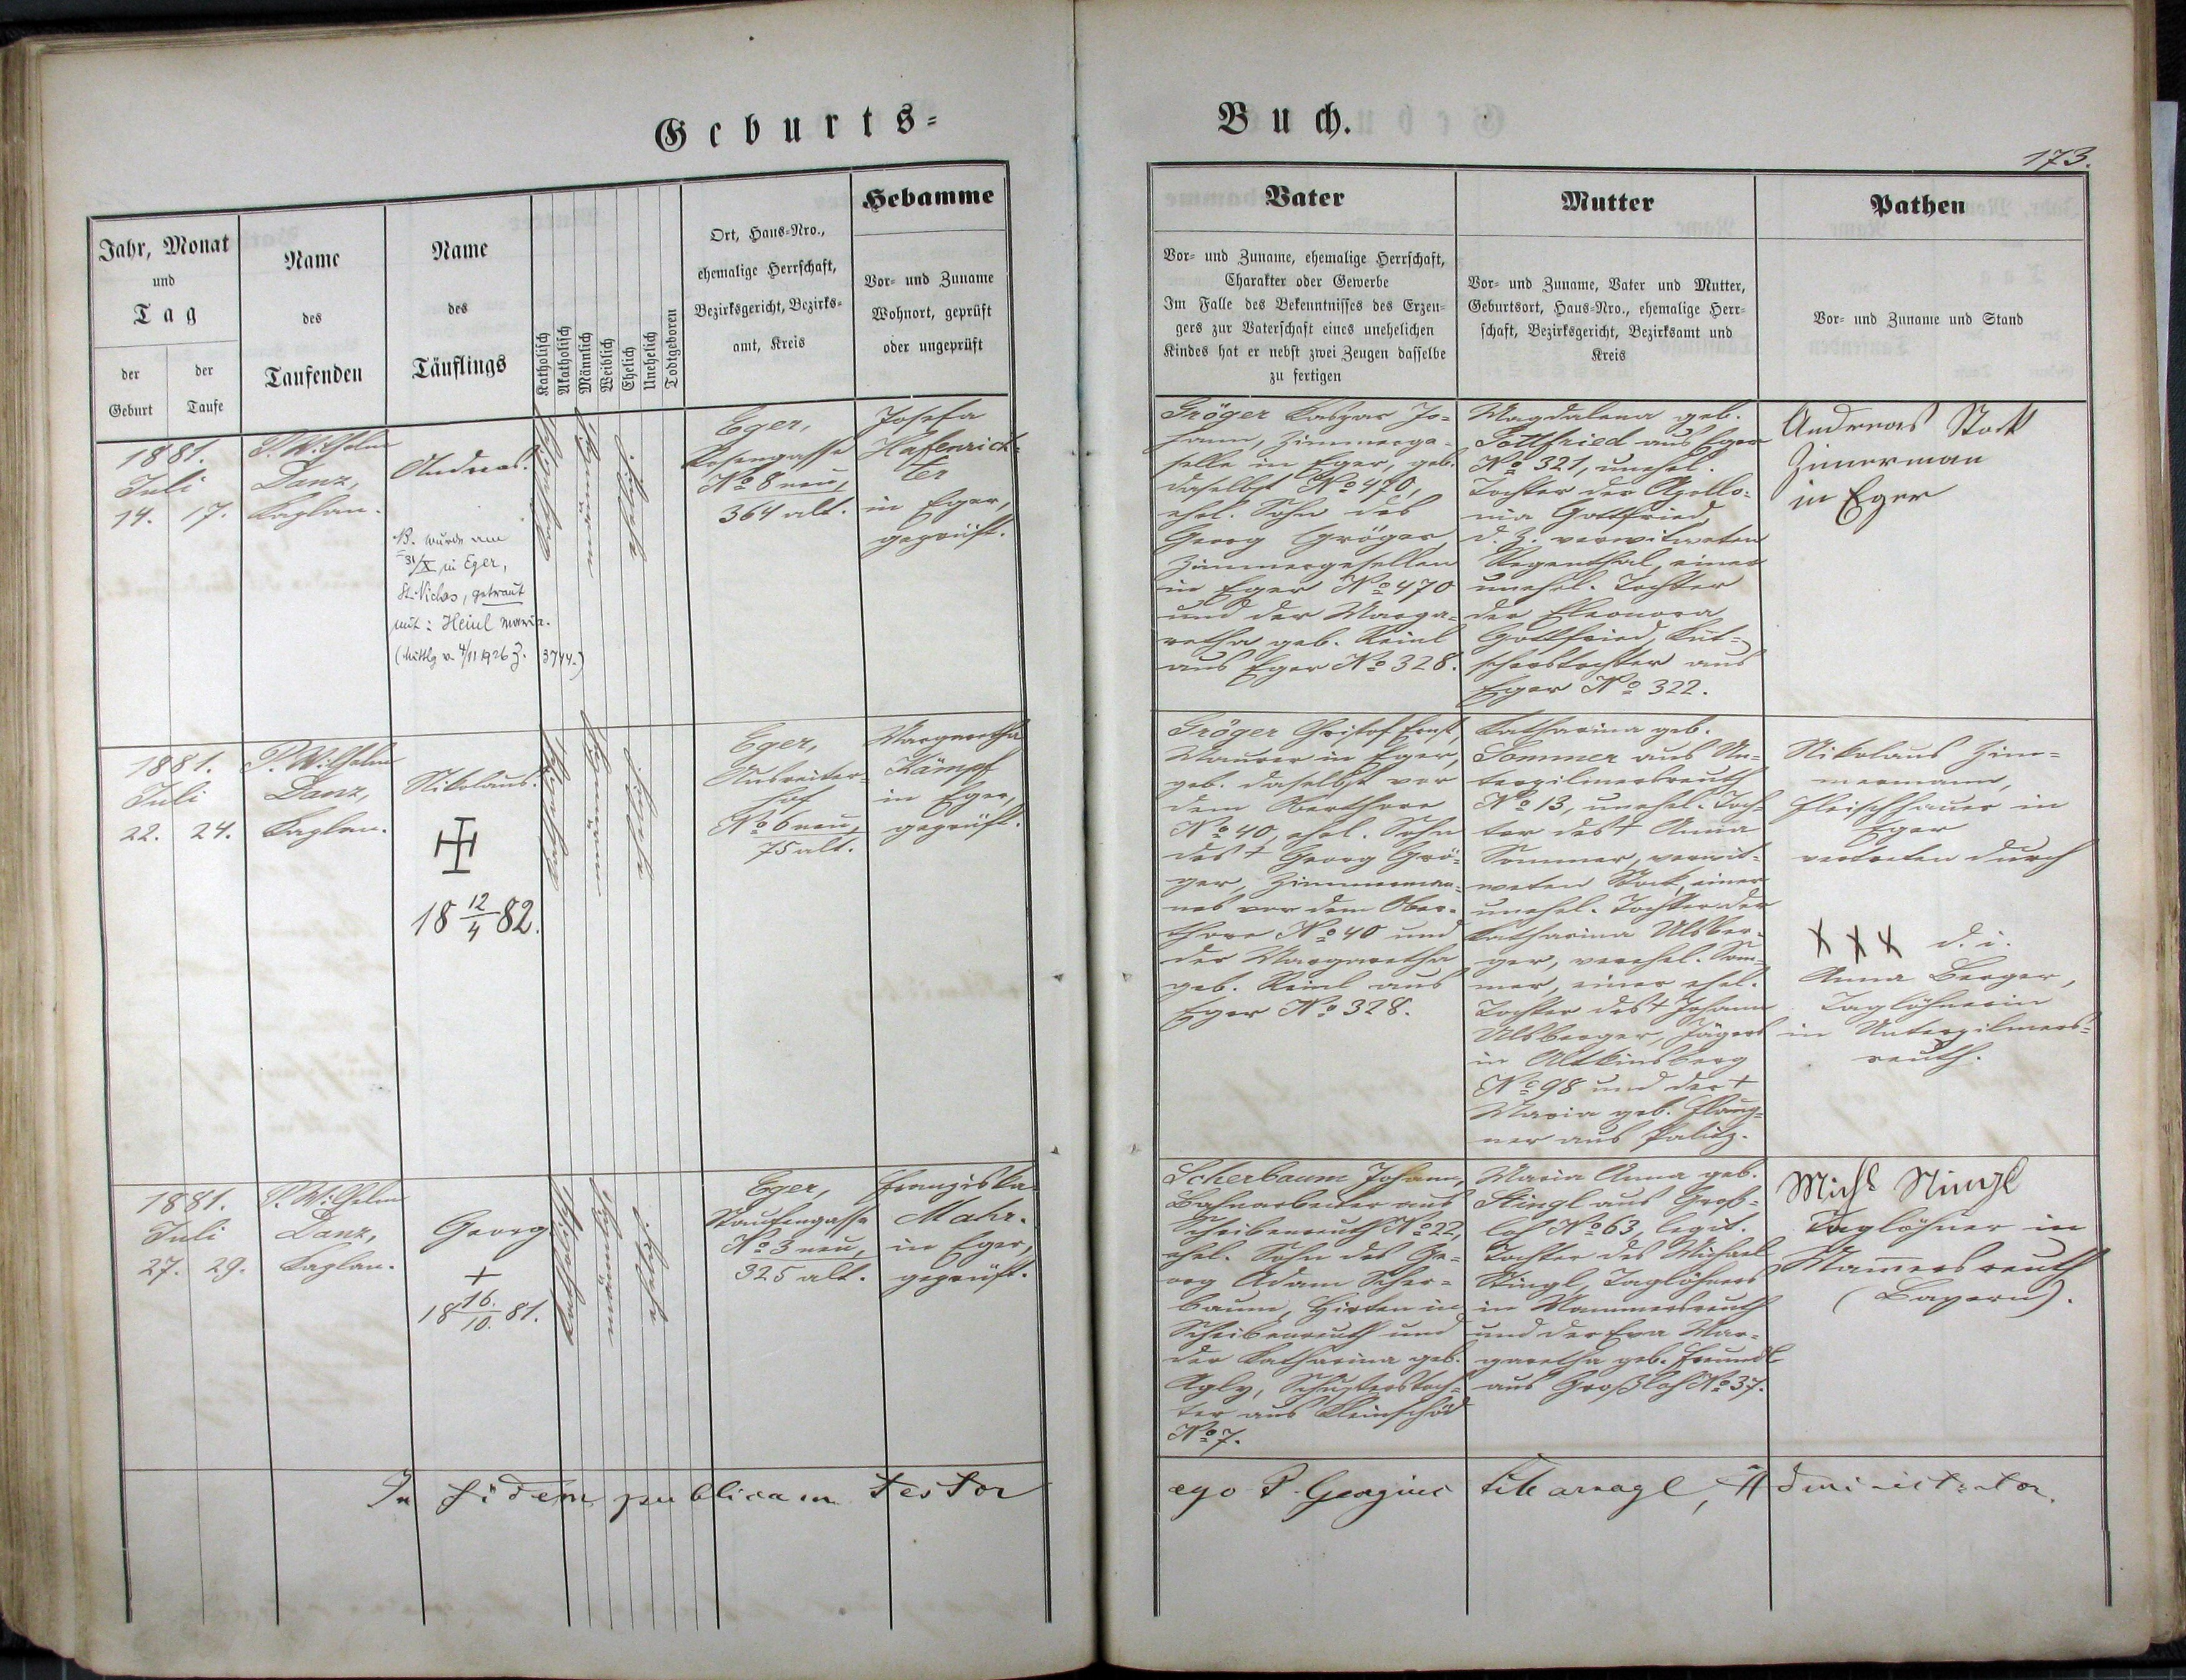 Geburts-
Buch.
173.
Jahr, Monat
und
Tag
der
Geburt
der
Taufe
Name
des
Taufenden
Name
des
Täuflings
Katholisch
Akatholisch
Männlich
Weiblich
Ehelich
Unehelich
Todtgeboren
Ort, Haus-Nro.,
ehemalige Herrschaft,
Bezirksgericht, Bezirks-
amt, Kreis
Hebamme
Vor- und Zuname
Wohnort, geprüft
oder ungeprüft
Vater
Vor- und Zuname, ehemalige Herrschaft,
Charakter oder Gewerbe
Im Falle des Bekenntnisses des Erzeu-
gers zur Vaterschaft eines unehelichen
Kindes hat er nebst zwei Zeugen dasselbe
zu fertigen
Mutter
Vor- und Zuname, Vater und Mutter,
Geburtsort, Haus-Nro., ehemalige Herr-
schaft, Bezirksgericht, Bezirksamt und
Kreis
Pathen
Vor- und Zuname und Stand
1881.
Juli
14. 17.
P. Wilhelm
Danz,
Kaplan.
Andreas.
NB. wurde am
31/X in Eger,
St. Niclas, getraut
mit: Heinl Maria.
(Mittlg v. 4/11 1926 Z. 3744.)
katholisch
männlich
ehelich.
Eger,
Rosengasse
No 8 neu,
364 alt.
Josefa
Hafenrich-
ter
in Eger,
geprüft.
Gröger Kaspar Jo-
hann, Zimmerge-
selle in Eger, geb.
daselbst No 470,
ehel. Sohn des
Georg Gröger,
Zimmergesellen
in Eger No 470
und der Marga-
retha geb. Reinl
aus Eger No 328.
Magdalena geb.
Gottfried aus Eger
No 321, unehel.
Tochter der Apollo-
nia Gottfried,
d. Z. verwitweten
Regenthal, einer
unehel. Tochter
der Eleonora
Gottfried, Kut-
scherstochter aus
Eger No 322.
Andreas Stock
Zimerman
in Eger
1881.
Juli
22. 24.
P. Wilhelm
Danz,
Kaplan.
Nikolaus.
18 12/4 82.
katholisch
männlich
ehelich.
Eger,
Ausreiter-
hof
No 6 neu,
75 alt.
Margaretha
Kämpf
in Eger,
geprüft.
Gröger Christof Ernst,
Maurer in Eger,
geb. daselbst vor
dem Oberthore
No 40, ehel. Sohn
des + Georg Grö-
ger, Zimmerman-
nes vor dem Ober-
thore No 40 und
der Margaretha
geb. Reinl aus
Eger No 328.
Katharina geb.
Sommer aus Un-
terpilmersreuth
No 13, unehel. Toch-
ter der + Anna
Sommer, verwit-
weten Stock, einer
unehel. Tochter der
Katharina Ulsber-
ger, verehel. Som-
mer, einer ehel.
Tochter des + Johann
Ulsberger, Jägers
in Altkinsberg
No 98 und der +
Maria geb.
ner aus Palitz.
Nikolaus Zim-
mermann,
Fleischhauer in
Eger
vertreten durch
XXX d. i.
Anna Berger,
Taglöhnerin
in Unterpilmers-
reuth.
1881.
Juli
27. 29.
P. Wilhelm
Danz,
Kaplan.
Georg
+
18 16./10. 81.
katholisch
männlich
ehelich.
Eger,
Staufengasse
No 3 neu,
325 alt.
Franziska
Mahr.
in Eger,
geprüft.
Scherbaum Johann,
Bahnarbeiter aus
Scheibenreuth No 22,
ehel. Sohn des Ge-
org Adam Scher-
baum, Hirten in
Scheibenreuth und
der Katharina geb.
Schusterstoch-
ter aus Kleinschüd
No 7.
Maria Anna geb.
Stingl aus Groß-
loh No 63, legit.
Tochter des Michael
Stingl, Taglöhners
in Mammersreuth
und der Eva Mar-
garetha geb. Freundl
aus Großloh No 37.
Michl Stingl
Taglöhner in
Mamersreuth
(Bayern).
In fidem publicam testor
ego P. Georgius Administrator.